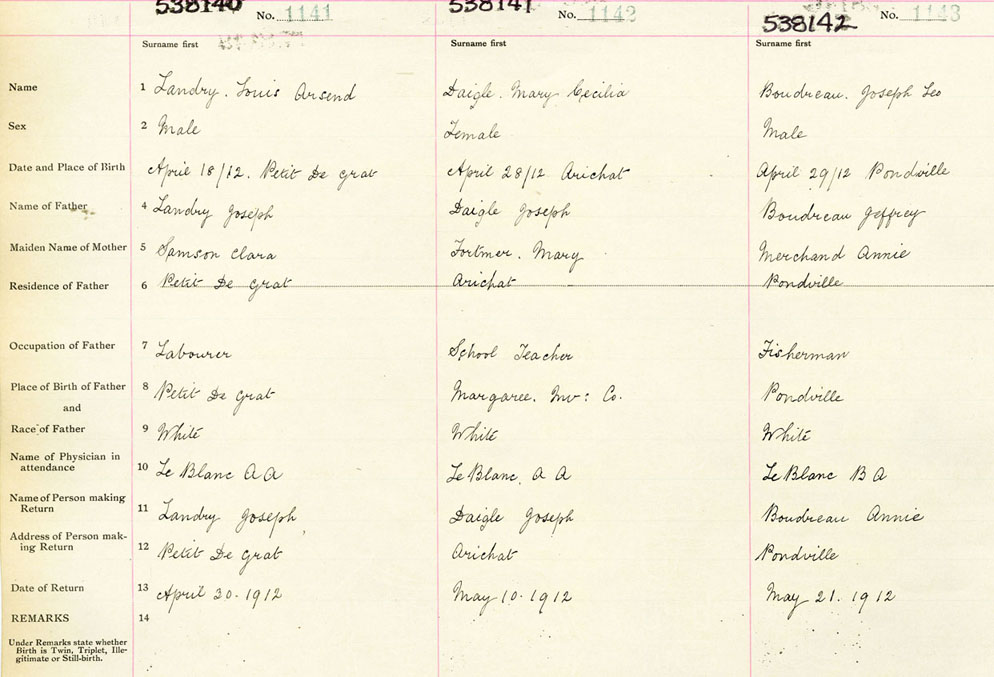 538140 No. 1141 538141 No. 1142 538142 No. 1143
Surname first Surname first Surname first
Name 1 Landry. Louis Arsend Daigle. Mary Cecilia Boudreau. Joseph Leo
Sex 2 Male Female Male
Date and Place of Birth April 18/12. Petit De Grat April 28/12 Arichat April 29/12 Pondville
Name of Father 4 Landry Joseph Daigle Joseph Boudreau Jeffrey
Maiden Name of Mother 5 Samson Clara Fortmer. Mary Merchand Annie
Residence of Father 6 Petit De Grat Arichat Pondville
Occupation of Father 7 Labourer School Teacher Fisherman
Place of Birth of Father 8 Petit De Grat Margaree. Inv: Co. Pondville
and
Race of Father 9 White White White
Name of Physician in
attendance 10 Le Blanc A A Le Blanc. A A Le Blanc B A
Name of Person making
Return 11 Landry Joseph Daigle Joseph Boudreau Annie
Address of Person mak-
ing Return 12 Petit De Grat Arichat Pondville
Date of Return 13 April 30. 1912 May 10. 1912 May 21. 1912
REMARKS 14
Under Remarks state whether
Birth is Twin, Triplet, Ille-
gitimate or Still-birth.